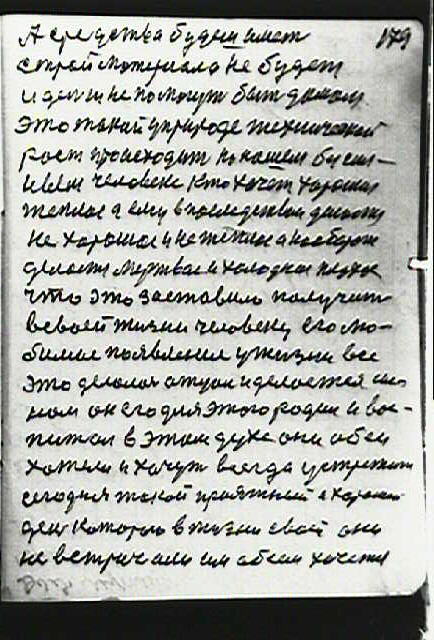 А средства будем иметь 179
сырой материала не будет
и деньги не помогут быть даном
Это такой у природе технический
рост происходит по нашем бугни-
и всем человеке кто хочет хорошая
теплое а ему в последствии
не хорошое и не теплое а наоборот
делается мертвое и холодное плохое
что это заставило получить
в своей жизни человеку его лю-
бимые появления у жизни все
это делолся отцом и делается сы
ном он его для этого родил и вос-
питал в этом духе они обеи
хотели и хочут всегда устретить
сегодня такой приятный и хороший
ден которого в жизни своей они
не встричали им обеим хочется